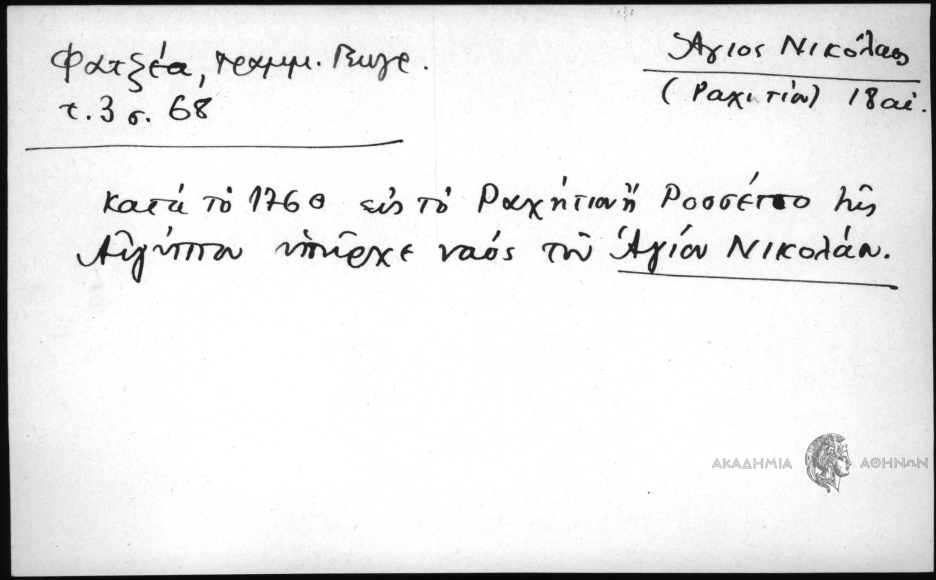 Φατζέα, Γραμμ. Γεωγρ.
τ. 3 σ. 68
Ἅγιος Νικόλαος
(Ραχιτίου) 18 αἰ.
Κατά τὸ 1760 εἰς τὸ Ραχήτιον ἤ Ροσσέττο τῆς
Αἰγύπτου ὑπῆρχε ναός τοῦ Ἁγίου Νικολάου.
ΑΚΑΔΗΜΙΑ ΑΘΗΝΩΝ